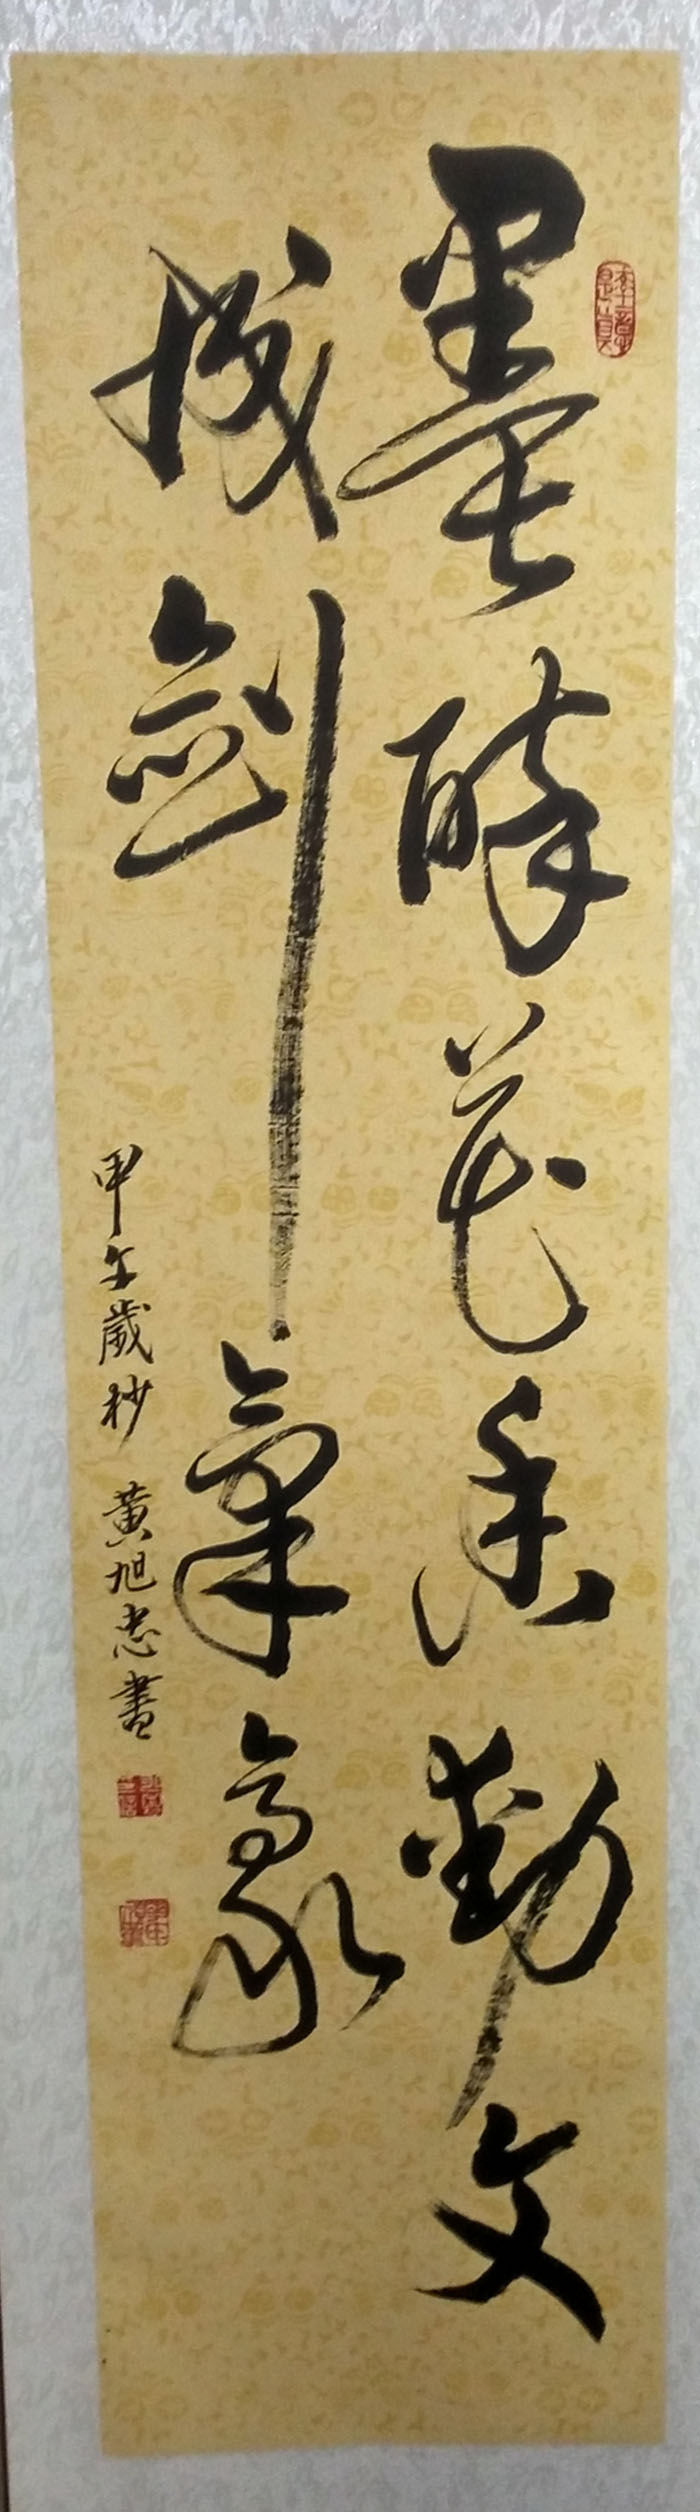 墨醉花香動文
成劍氣豪
甲午歲杪 黃旭忠書